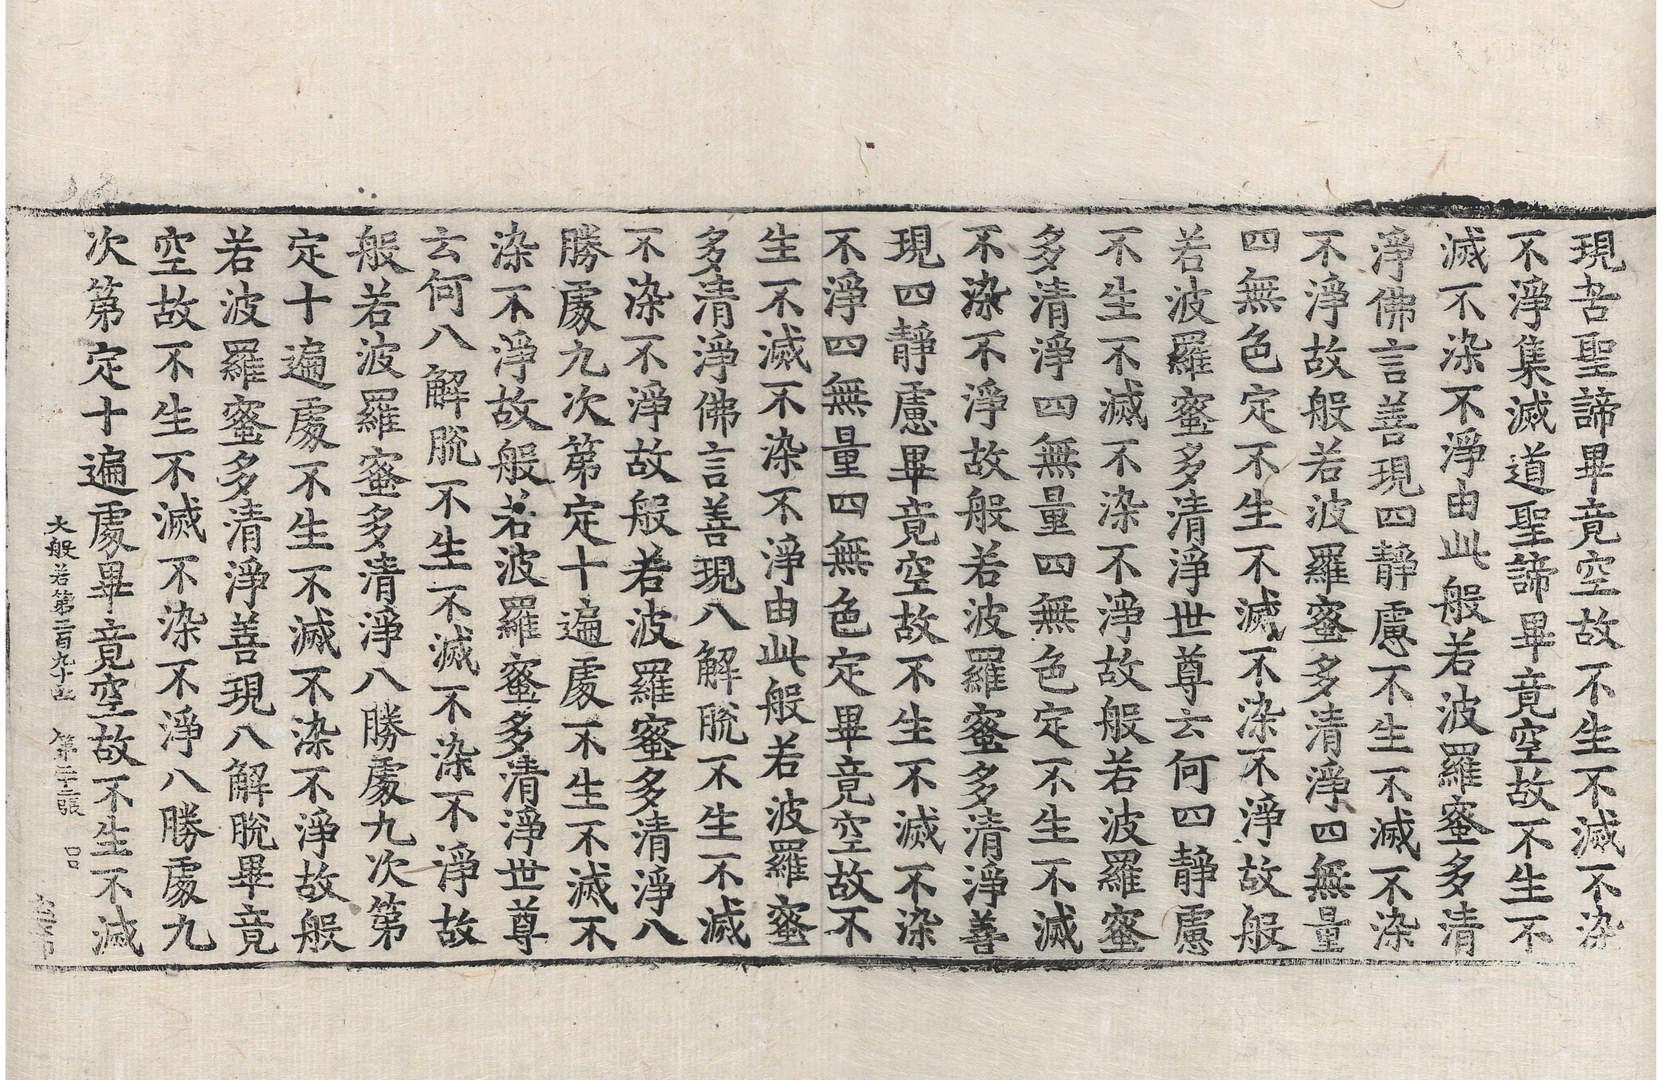 現苦聖諦畢竟空故不生不滅不染
不淨集滅道聖諦畢竟空故不生不
滅不染不淨由此般若波羅蜜多清
淨佛言善現四靜慮不生不滅不染
不淨故般若波羅蜜多清淨四無量
四無色定不生不滅不染不淨故般
若波羅蜜多清淨世尊云何四靜慮
不生不滅不染不淨故般若波羅蜜
多清淨四無量四無色定不生不滅
不染不淨故般若波羅蜜多清淨善
現四靜慮畢竟空故不生不滅不染
不淨四無量四無色定畢竟空故不
生不滅不染不淨由此般若波羅蜜
多清淨佛言善現八解脫不生不滅
不染不淨故般若波羅蜜多清淨八
勝處九次第定十遍處不生不滅不
染不淨故般若波羅蜜多清淨世尊
云何八解脫不生不滅不染不淨故
般若波羅蜜多清淨八勝處九次第
定十遍處不生不滅不染不淨故般
若波羅蜜多清淨善現八解脫畢竟
空故不生不滅不染不淨八勝處九
次第定十遍處畢竟空故不生不滅
大般若第二百九十五 第二十二張 呂